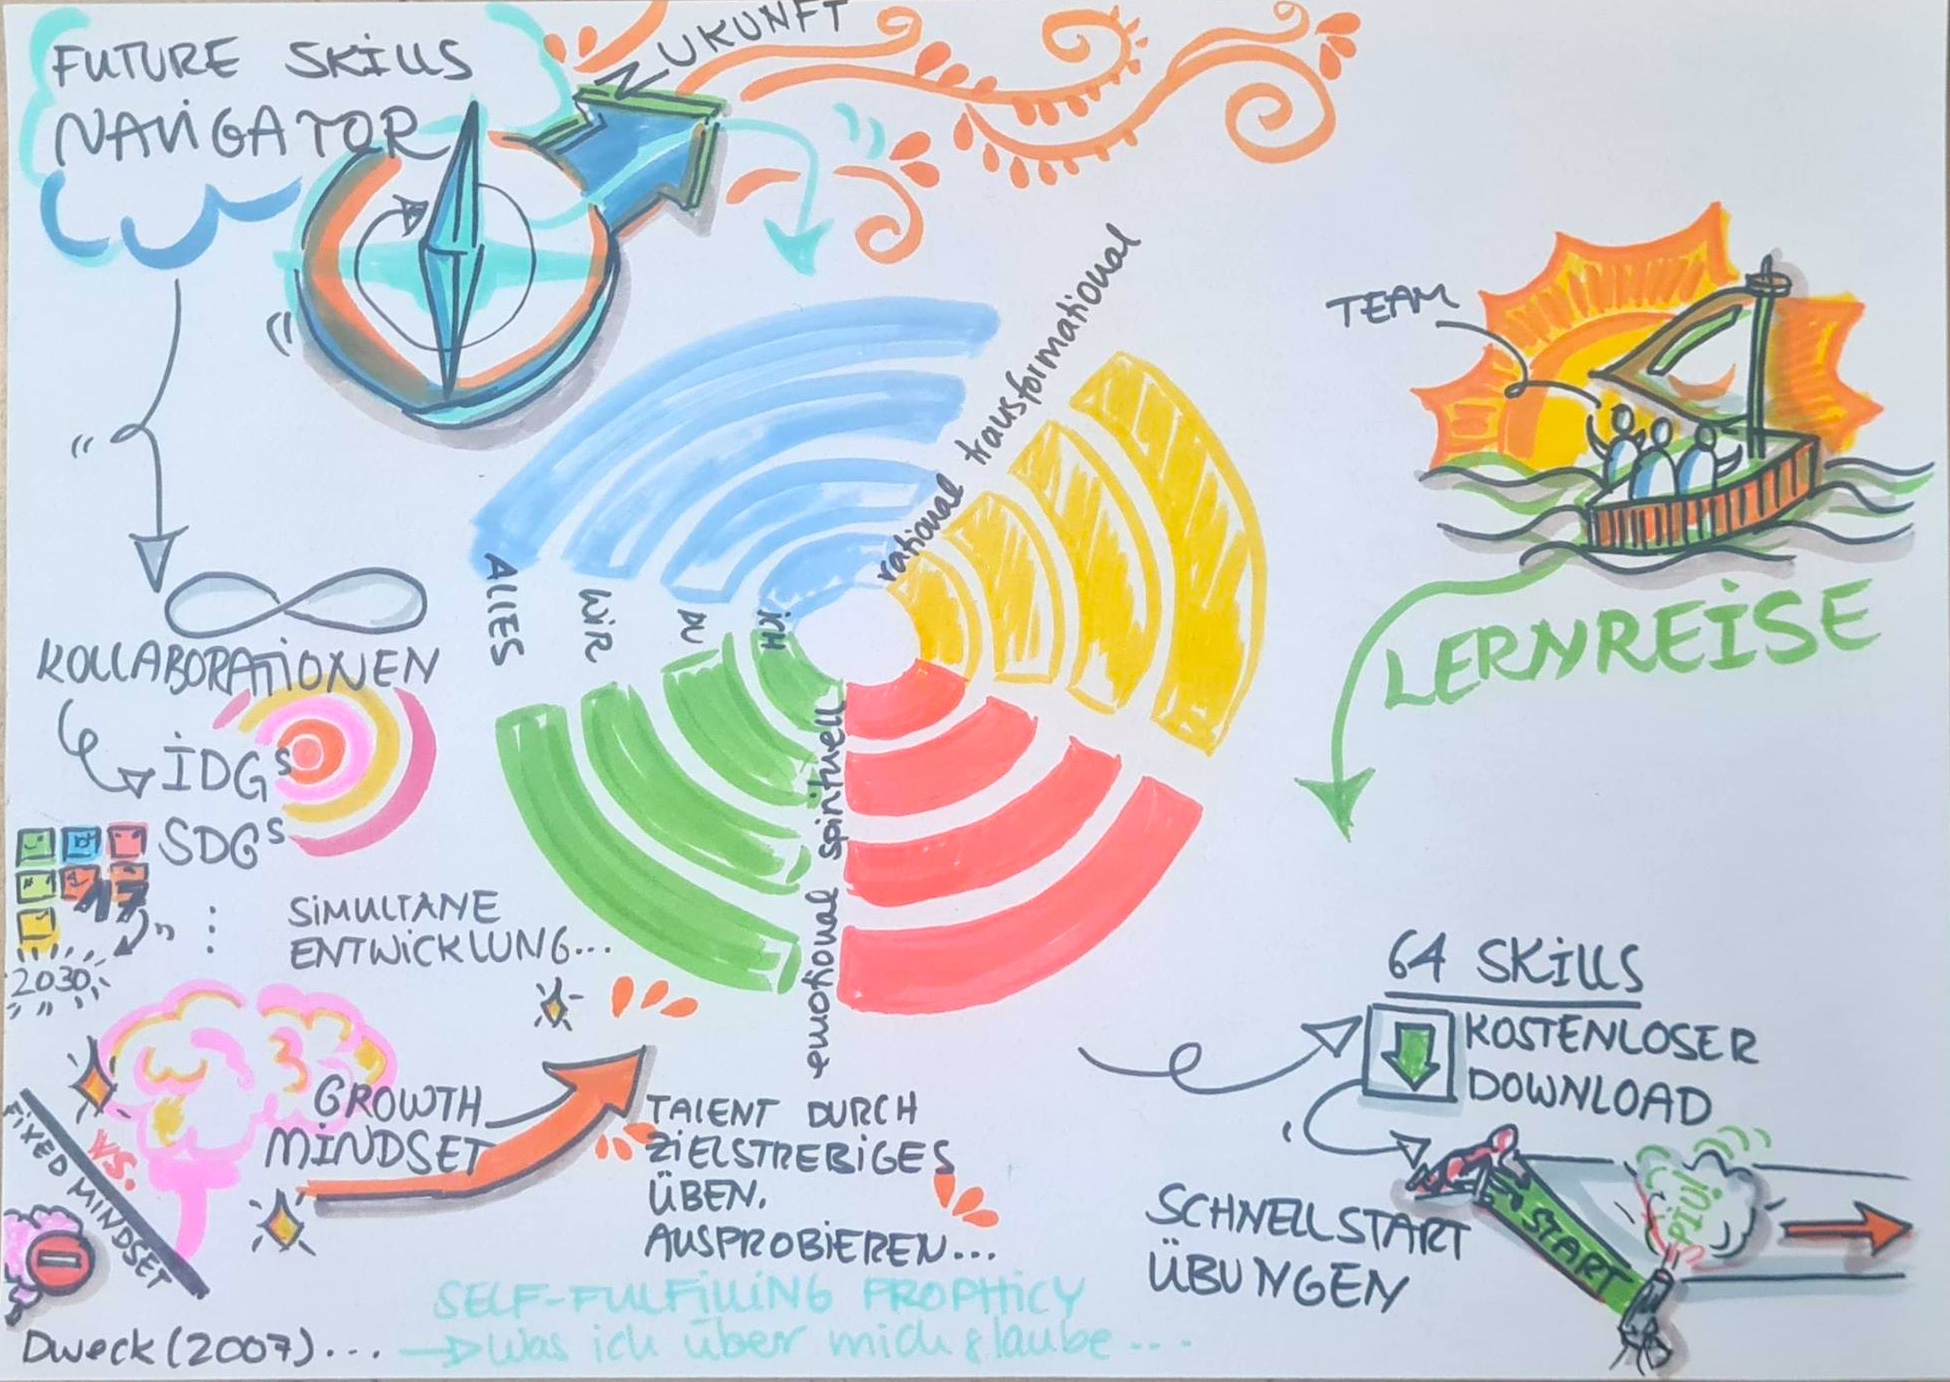 FUTURE SKILLS
NAVIGATOR
ZUKUNFT
TEAM
LERNREISE
rational transformational
ALLES
WIR
DU
ICH
emotional spirituell
KOLLABORATIONEN
IDGs
SDGs
17
2030
SIMULTANE
ENTWICKLUNG...
GROWTH
MINDSET
VS.
FIXED MINDSET
TALENT DURCH
ZIELSTREBIGES
ÜBEN.
AUSPROBIEREN...
Dweck (2007)...
SELF-FULFILLING PROPHICY
Was ich über mich glaube...
64 SKILLS
KOSTENLOSER
DOWNLOAD
SCHNELLSTART
ÜBUNGEN
START
PIU!